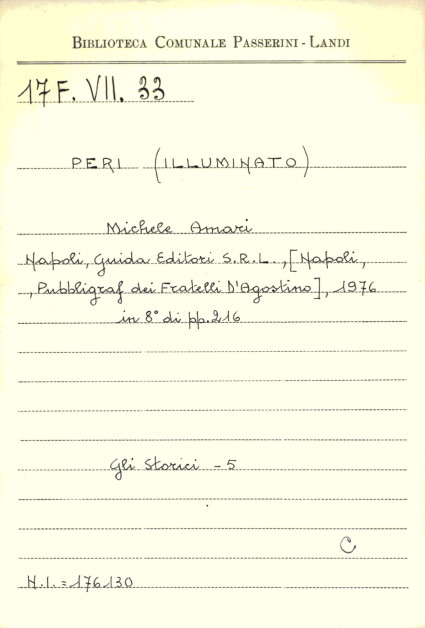 BIBLIOTECA COMUNALE PASSERINI - LANDI
17 F. VII. 33
PERI (ILLUMINATO)
Michele Amari
Napoli, Guida Editori S.R.L., [Napoli,
, Pubbligraf dei Fratelli D'Agostino], 1976
in 8° di pp. 216
Gli Storici - 5
C
N.I. = 176130